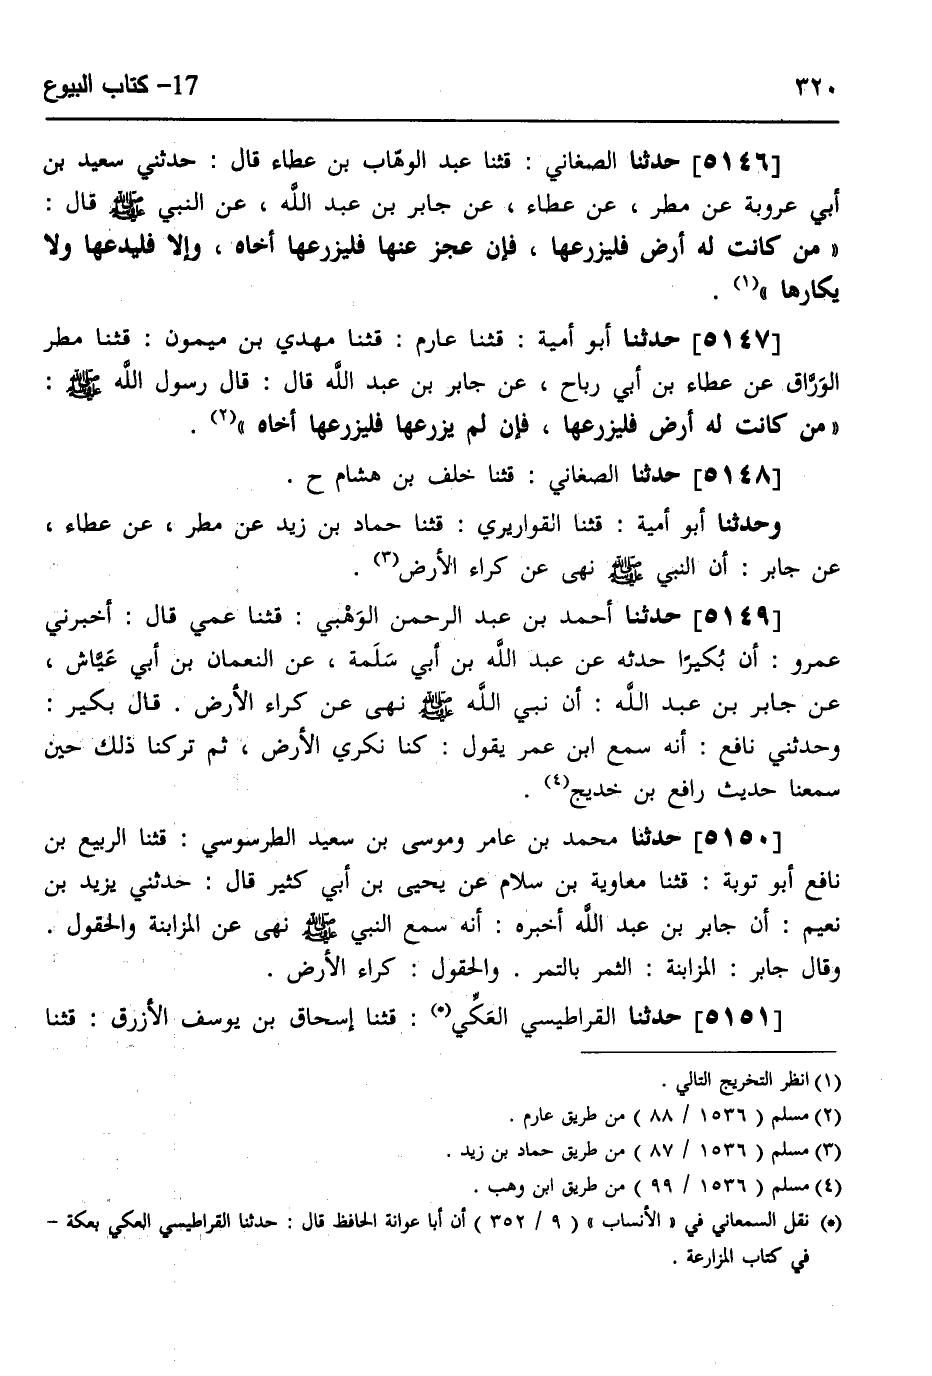 ٣٢٠
17- كتاب البيوع
[٥١٤٦] حدثنا الصغاني : قثنا عبد الوهّاب بن عطاء قال : حدثني سعيد بن
أبي عروبة عن مطر ، عن عطاء ، عن جابر بن عبد اللَّه ، عن النبي ﷺ قال :
« من كانت له أرض فليزرعها ، فإن عجز عنها فليزرعها أخاه ، وإلا فليدعها ولا
يكارها »(١) .
[٥١٤٧] حدثنا أبو أمية : قثنا عارم : قثنا مهدي بن ميمون : قثنا مطر
الوَرَّاق عن عطاء بن أبي رباح ، عن جابر بن عبد اللَّه قال : قال رسول اللَّه ﷺ :
« من كانت له أرض فليزرعها ، فإن لم يزرعها فليزرعها أخاه »(٢) .
[٥١٤٨] حدثنا الصغاني : قثنا خلف بن هشام ح .
وحدثنا أبو أمية : قثنا القواريري : قثنا حماد بن زيد عن مطر ، عن عطاء ،
عن جابر : أن النبي ﷺ نهى عن كراء الأرض(٣) .
[٥١٤٩] حدثنا أحمد بن عبد الرحمن الوَهْبي : قثنا عمي قال : أخبرني
عمرو : أن بُكيرًا حدثه عن عبد اللَّه بن أبي سَلَمة ، عن النعمان بن أبي عَيَّاش ،
عن جابر بن عبد اللَّه : أن نبي اللَّه ﷺ نهى عن كراء الأرض . قال بكير :
وحدثني نافع : أنه سمع ابن عمر يقول : كنا نكري الأرض ، ثم تركنا ذلك حين
سمعنا حديث رافع بن خديج(٤) .
[٥١٥٠] حدثنا محمد بن عامر وموسى بن سعيد الطرسوسي : قثنا الربيع بن
نافع أبو توبة : قثنا معاوية بن سلام عن يحيى بن أبي كثير قال : حدثني يزيد بن
نعيم : أن جابر بن عبد اللَّه أخبره : أنه سمع النبي ﷺ نهى عن المزابنة والحقول .
وقال جابر : المزابنة : الثمر بالتمر . والحقول : كراء الأرض .
[٥١٥١] حدثنا القراطيسي العَكِّي(*) : قثنا إسحاق بن يوسف الأزرق : قثنا
(١) انظر التخريج التالي .
(٢) مسلم ( ١٥٣٦ / ٨٨ ) من طريق عارم .
(٣) مسلم ( ١٥٣٦ / ٨٧ ) من طريق حماد بن زيد .
(٤) مسلم ( ١٥٣٦ / ٩٩ ) من طريق ابن وهب .
(*) نقل السمعاني في « الأنساب » ( ٩ / ٣٥٢ ) أن أبا عوانة الحافظ قال : حدثنا القراطيسي العكي بعكة –
في كتاب المزارعة .